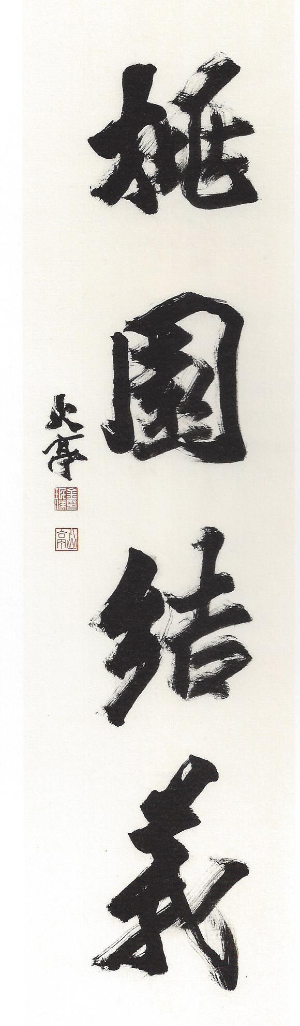 桃園結義
火亭